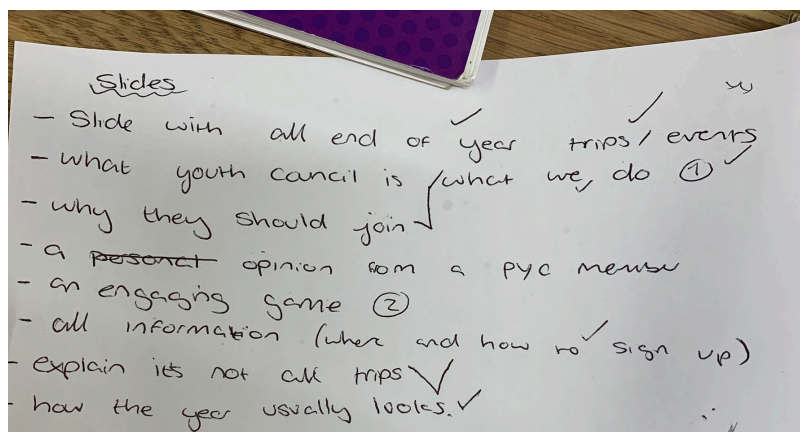 Slides
- Slide with all end of year trips/events
- what youth council is / what we do ①
- why they should join
- a personal opinion from a PYC member
- an engaging game ②
- all information (where and how to sign up)
- explain it's not all trips
- how the year usually looks.